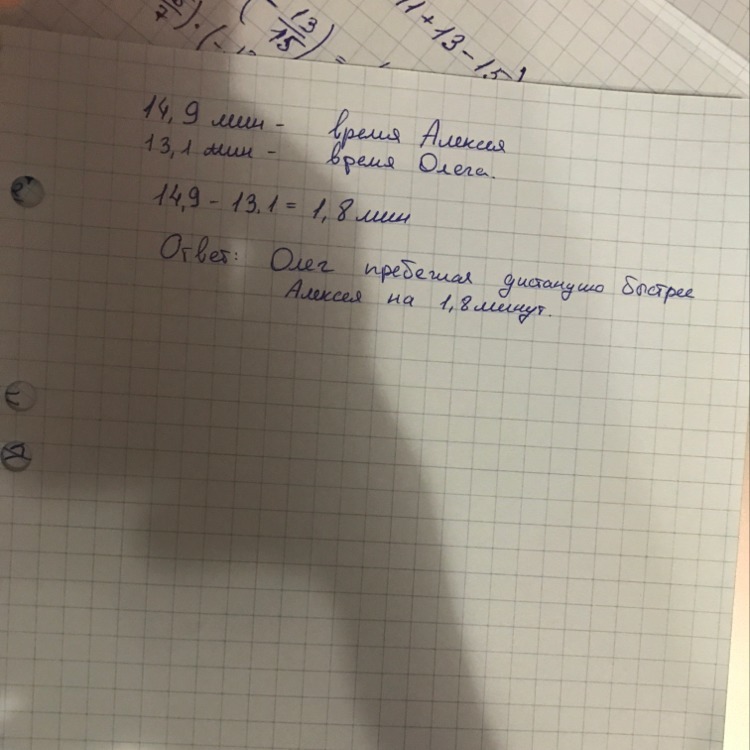 13
15
=
11+13-15
14,9 мин - время Алексея
13,1 мин - время Олега.
14,9 - 13,1 = 1,8 мин
Ответ: Олег пребежал дистанцию быстрее
Алексея на 1,8 минут.